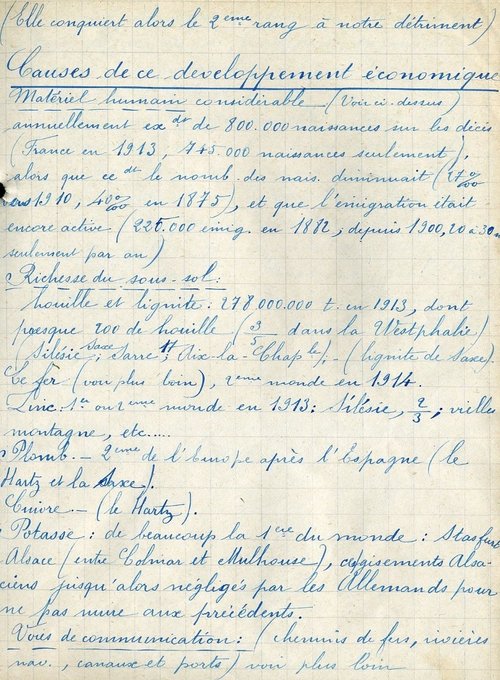 (Elle conquiert alors le 2eme rang à notre détriment)
Causes de ce developpement économique
Matériel humain considérable (Voir ci-dessus)
annuellement exdt de 800.000 naissances sur les décès
(France en 1913, 745.000 naissances seulement),
alors que ce dt le nomb. des nais. diminuait (27‰
vers 1910, 40‰ en 1875), et que l'émigration était
encore active (220.000 émig. en 1882, depuis 1900, 20 à 30 m
seulement par an)
Richesse du sous-sol:
houille et lignite: 278.000.000 t. en 1913, dont
presque 200 de houille (3/5 dans la Westphalie)
(Silésie, Saxe, Sarre, Aix-la-Chaple). - (lignite de Saxe).
Le fer (voir plus loin), 2eme monde en 1914.
Zinc. 1er ou 2eme monde en 1913: Silésie, 2/3; vieille
montagne, etc.....
Plomb. - 2eme de l'Europe après l'Espagne (le
Hartz et la Saxe).
Cuivre - (le Hartz).
Potasse: de beaucoup la 1ère du monde: Stasfurt
Alsace (entre Colmar et Mulhouse), gisements Alsa-
ciens jusqu'alors négligés par les Allemands pour
ne pas nuire aux précédents.
Voies de communication: (chemins de fers, rivières
nav., canaux et ports) voir plus loin